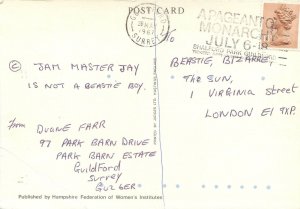 POST CARD
GUILDFORD
SURREY
A PAGEANT OF
MONARCHY
JULY 6-18
Ⓔ JAM MASTER JAY
IS NOT A BEASTIE BOY.
From DUANE FARR
97 PARK BARN DRIVE
PARK BARN ESTATE
GUILDFORD
SURREY
GU2 6ER
BEASTIE, BIZARRE,
THE SUN,
1 VIRGINIA STREET
LONDON E1 9XP.
Published by Hampshire Federation of Women's Institutes